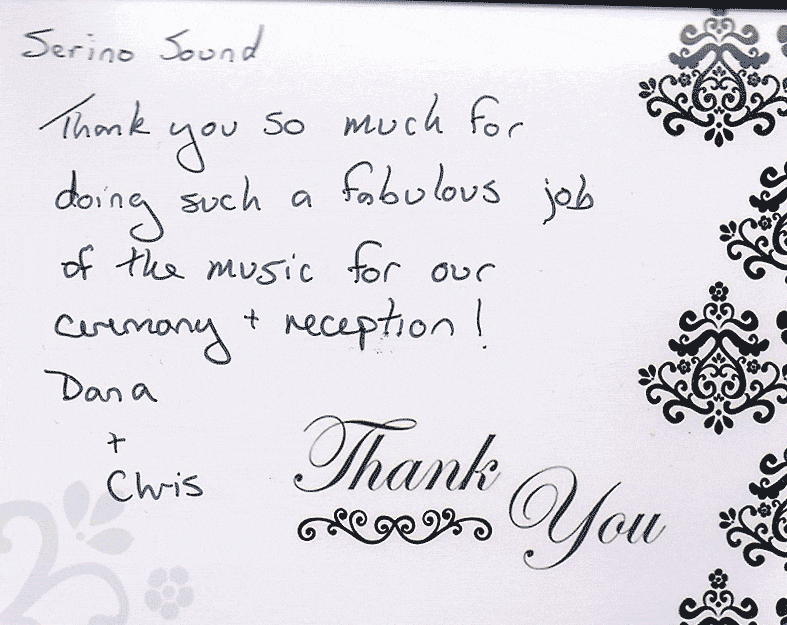 Serino Sound
Thank you so much for
doing such a fabulous job
of the music for our
ceremony + reception!
Dana
+
Chris
Thank
You